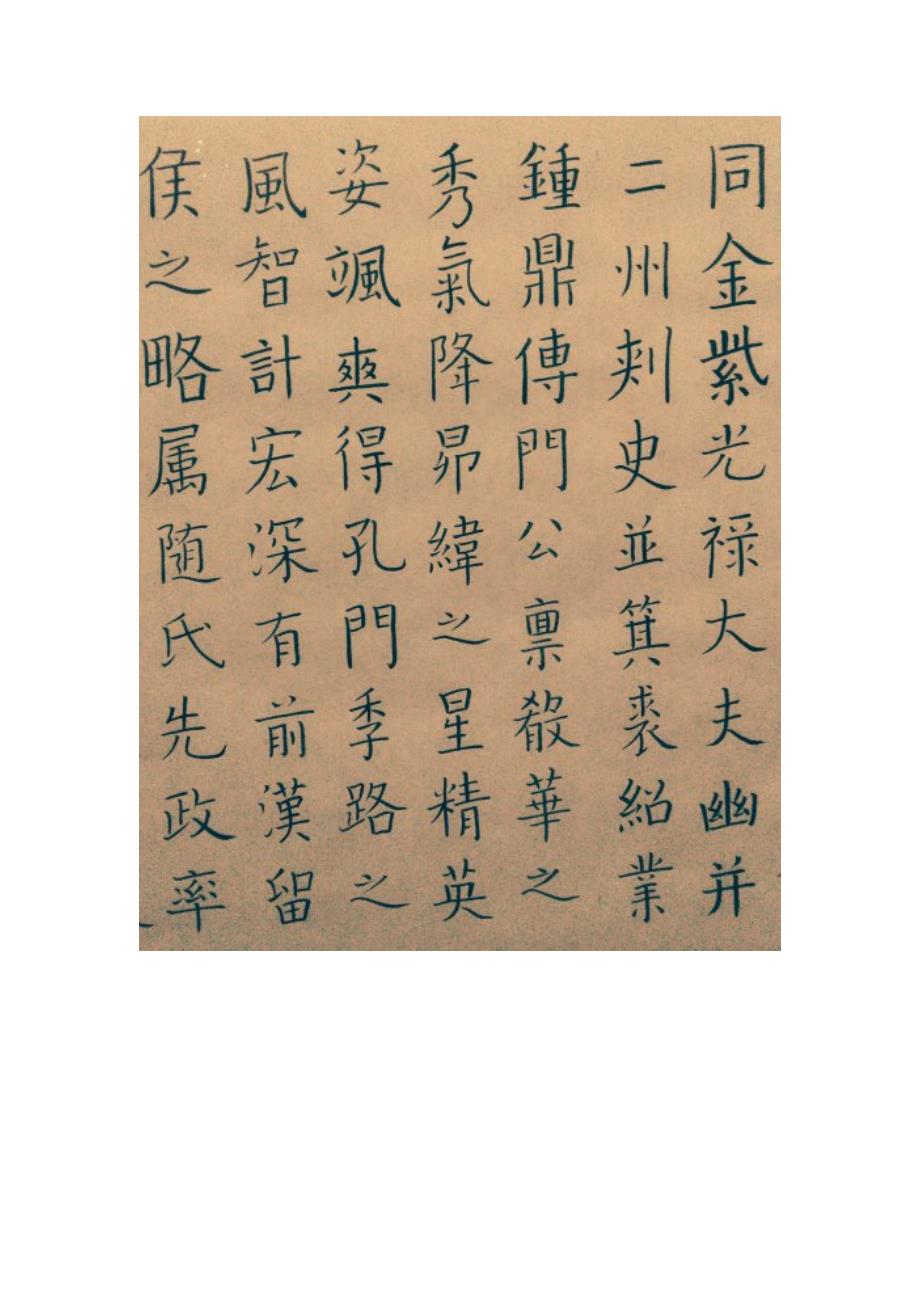 同金紫光禄大夫幽并
二州刾史並箕裘紹業
鍾鼎傳門公禀殽華之
秀氣降昴緯之星精英
姿颯爽得孔門季路之
風智計宏深有前漢留
侯之略属随氏先政率